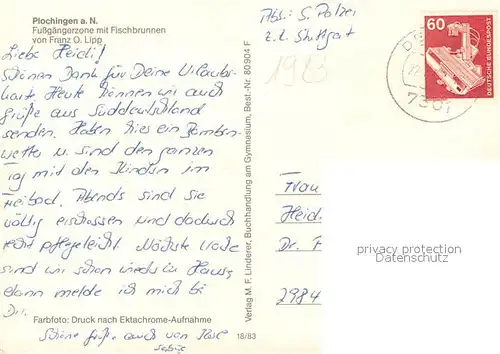 Plochingen a. N.
Fußgängerzone mit Fischbrunnen
von Franz O. Lipp
Liebe Heidi!
Schönen Dank für Deine Urlaubs-
karte. Heute können wir auch
Grüße aus Süddeutschland
senden. Haben hier ein Bomben-
wetter u. sind den ganzen
Tag mit den Kindern im
Freibad. Abends sind sie
völlig erschossen und dadurch
recht pflegeleicht. Nächste Woche
sind wir schon wieder im Hause,
dann melde ich mich bei
Dir.
Farbfoto: Druck nach Ektachrome-Aufnahme
Schöne Grüße auch von
18/83
Verlag M. F. Linderer, Buchhandlung am Gymnasium, Best.-Nr. 80904 F
Abs.: S. Polzei
z. Z. Stuttgart
1983
60
DEUTSCHE BUNDESPOST
Frau
Heid
Dr. F
2984
privacy protection
watermark